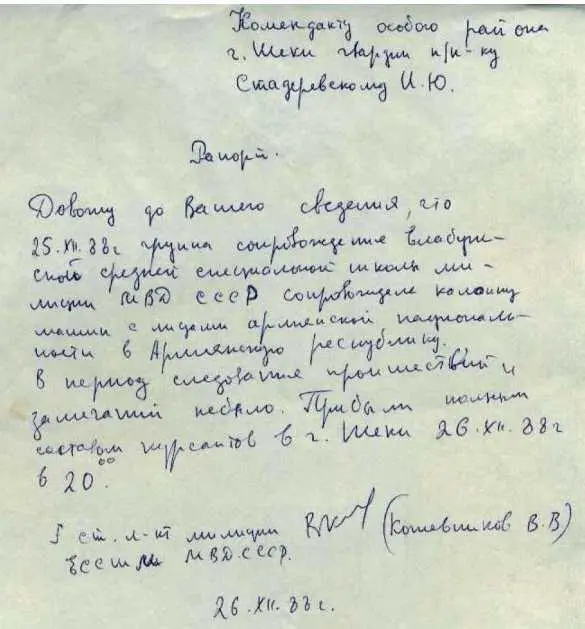 Коменданту особого района
г. Шеки гвардии п/п-ку
Стадеревскому И.Ю.
Рапорт.
Довожу до Вашего сведения, что
25.XII.88г группа сопровождение
ской средней специальной школы ми-
лиции МВД СССР сопровождала колонну
машин с лицами армянской националь-
ности в Армянскую республику.
В период следования происшествий и
замечаний небыло. Прибыли полным
составом курсантов в г. Шеки 26.XII.88г
в 20⁰⁰.
ст. л-нт милиции (Кошевников В.В)
ЕССШМ МВД СССР.
26.XII.88г.